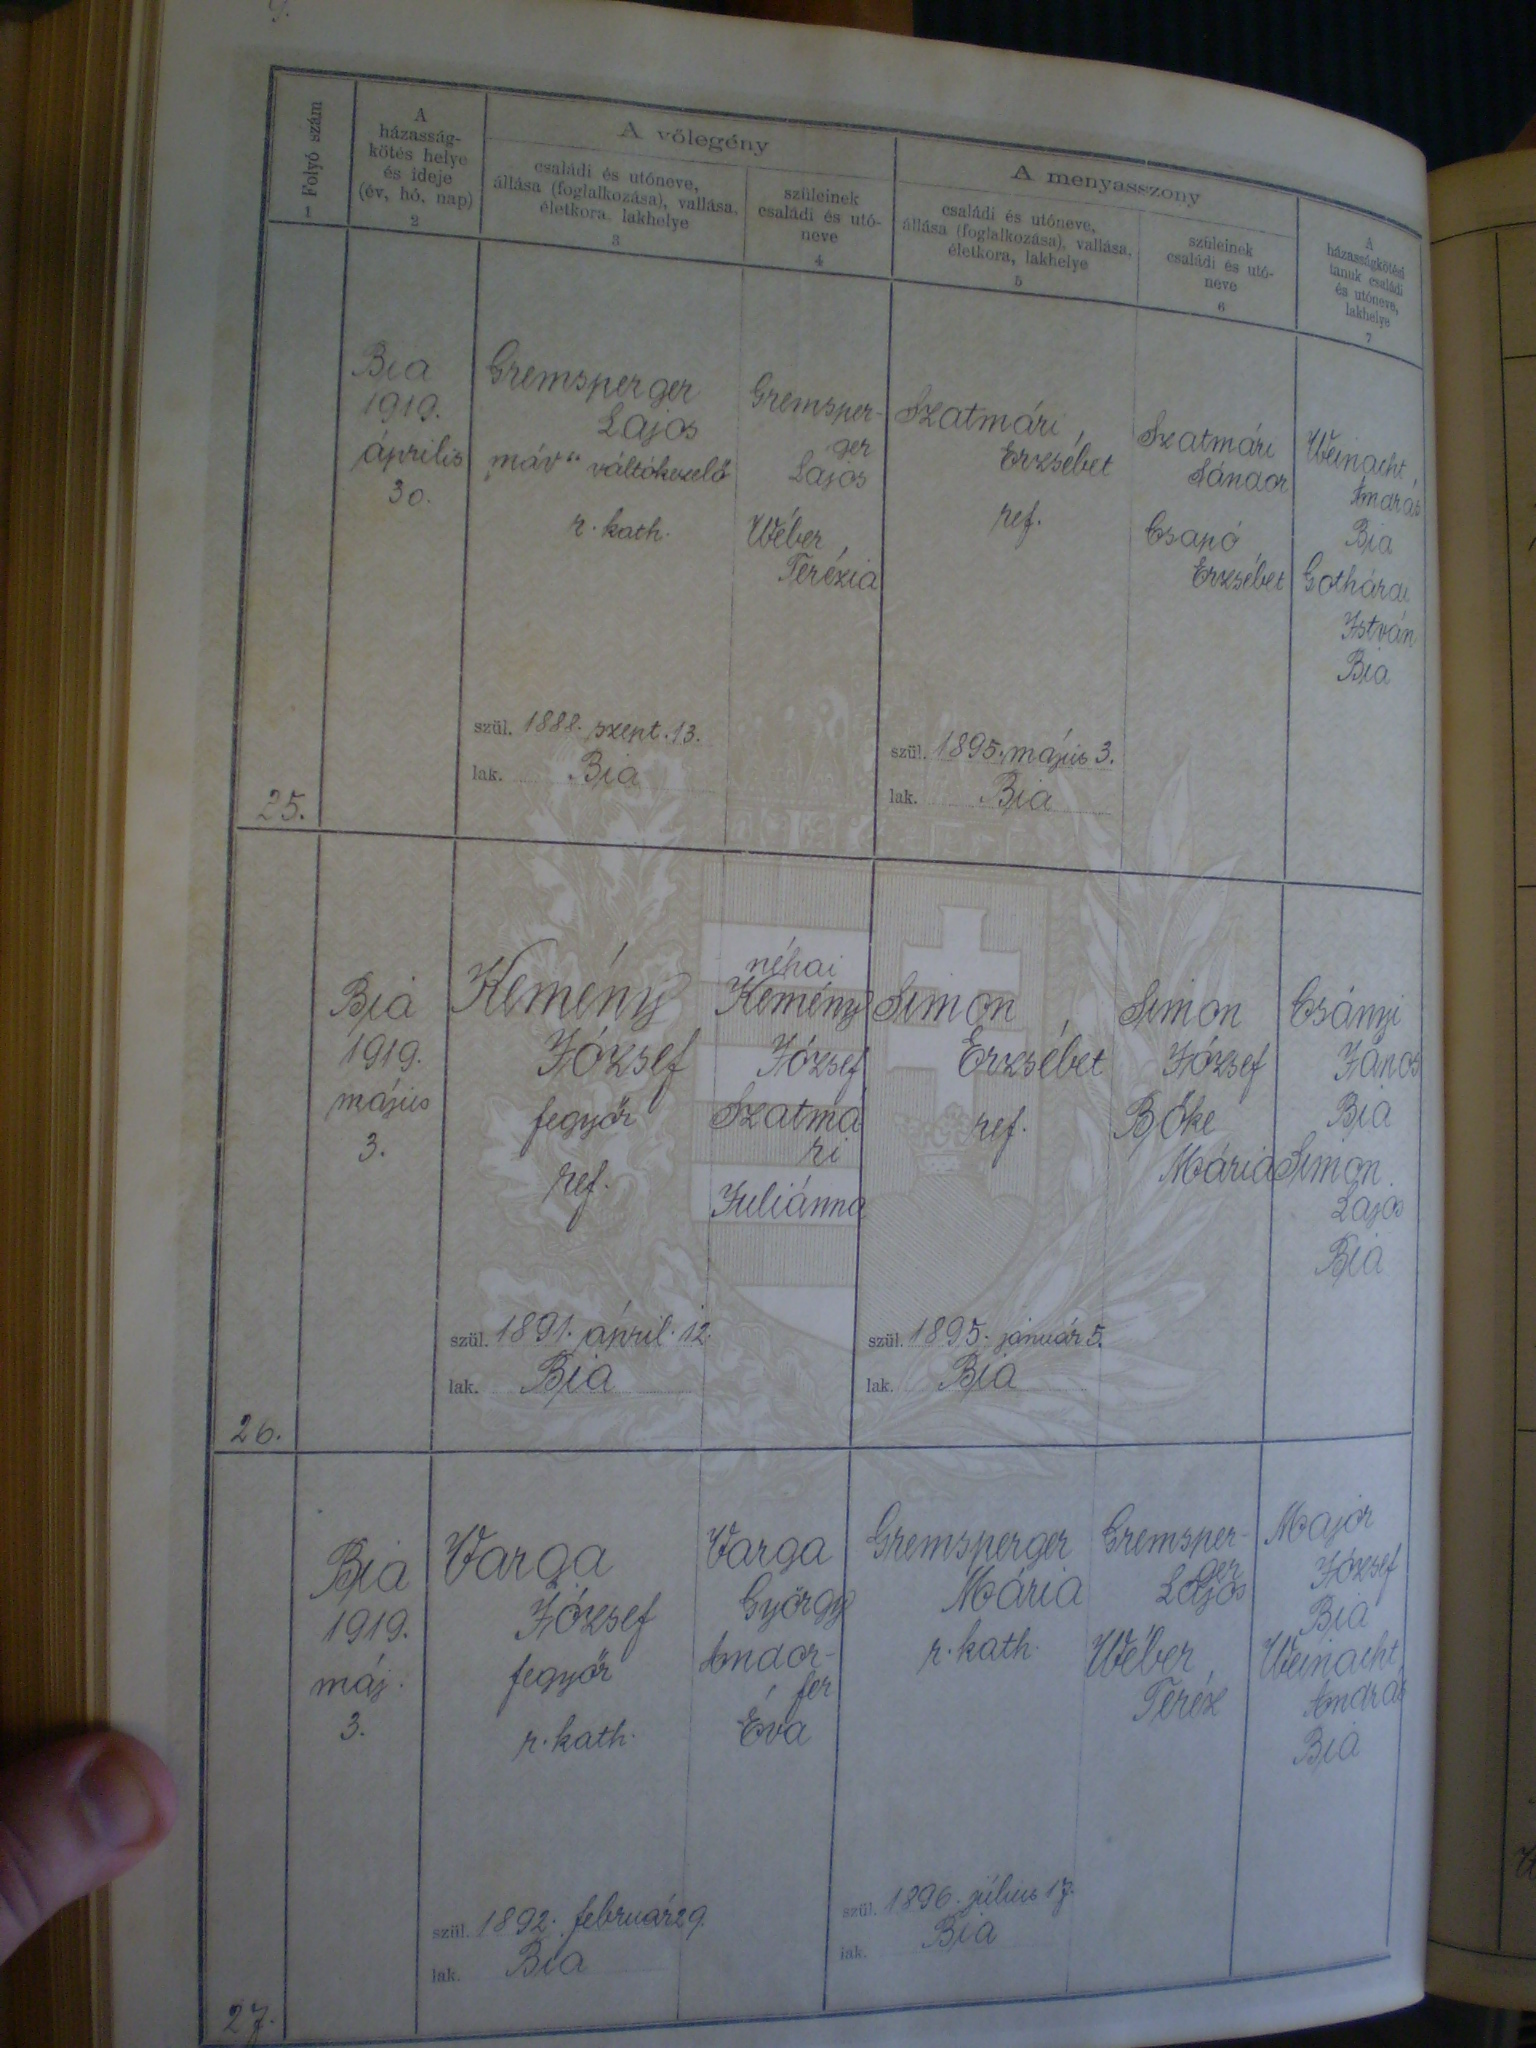 9.
Folyó szám
1
A
házasság-
kötés helye
és ideje
(év, hó, nap)
2
A vőlegény
családi és utóneve,
állása (foglalkozása), vallása,
életkora, lakhelye
3
szüleinek
családi és utó-
neve
4
A menyasszony
családi és utóneve,
állása (foglalkozása), vallása,
életkora, lakhelye
5
szüleinek
családi és utó-
neve
6
A
házasságkötési
tanuk családi
és utóneve,
lakhelye
7
25.
Bia
1919.
április
30.
Gremsperger
Lajos
„máv“ váltókezelő
r. kath.
szül. 1888. szept. 13.
lak. Bia
Gremsper-
ger
Lajos
Wéber
Terézia
Szatmári
Erzsébet
ref.
szül. 1895. május 3.
lak. Bia
Szatmári
Sándor
Csapó
Erzsébet
Weinacht
András
Bia
Gothárdi
István
Bia
26.
Bia
1919.
május
3.
Kemény
József
fegyőr
ref.
szül. 1891. ápril. 12.
lak. Bia
néhai
Kemény
József
Szatmá
ri
Juliánna
Simon
Erzsébet
ref.
szül. 1895. január 5.
lak. Bia
Simon
József
Bőke
Mária
Csányi
János
Bia
Simon
Lajos
Bia
27.
Bia
1919.
máj.
3.
Varga
József
fegyőr
r. kath.
szül. 1892. február 29.
lak. Bia
Varga
György
Andor-
fer
Éva
Gremsperger
Mária
r. kath.
szül. 1896. július 17.
lak. Bia
Gremsper-
ger
Lajos
Wéber
Teréz
Major
József
Bia
Weinacht
András
Bia